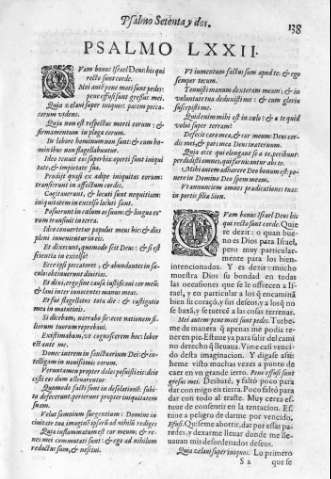 Psalmo Setenta y dos.
138
PSALMO LXXII.
QVam bonus Israel Deus his qui
recto sunt corde.
Mei autē penè moti sunt pedes:
penè effusi sunt gressus mei.
Quia zelaui super iniquos: pacem pecca-
torum videns.
Quia non est respectus morti eorum: &
firmamentum in plaga eorum.
In labore hominum non sunt: & cum ho-
minibus non flagellabuntur.
Ideo tenuit eos superbia: operti sunt iniqui
tate, & impietate sua.
Prodijt quasi ex adipe iniquitas eorum:
transierunt in affectum cordis.
Cogitauerunt, & locuti sunt nequitiam:
iniquitatem in excelso locuti sunt.
Posuerunt in cælum os suum: & lingua eo-
rum transiuit in terra.
Ideo conuertetur populus meus hic: & dies
pleni inuenientur in eis.
Et dixerunt, quomodo scit Deus: & si est
scientia in excelso?
Ecce ipsi peccatores, & abundantes in sæ-
culo: obtinuerunt diuitias.
Et dixi, ergo sine causa iustificaui cor meū:
& laui inter innocentes manus meas.
Et fui flagellatus tota die: & castigatio
mea in matutinis.
Si dicebam, narrabo sic: ecce nationem fi-
liorum tuorum reprobaui.
Existimabam, vt cognoscerem hoc: labor
est ante me.
Donec intrem in sanctuarium Dei: & in-
telligam in nouissimis eorum.
Veruntamen propter dolos posuisti eis: deie-
cisti eos dum alleuarentur.
Quomodo facti sunt in desolationē: subi-
to defecerunt: perierunt propter iniquitatem
suam.
Velut somnium surgentium: Domine in
ciuitate tua imaginē ipsorū ad nihilū rediges
Quia inflammatum est cor meum: & re-
nes mei commutati sunt: & ego ad nihilum
redactus sum, & nesciui.
Vt iumentum factus sum apud te: & ego
semper tecum.
Tenuisti manum dexteram meam: & in
voluntate tua deduxisti me: & cum gloria
suscepisti me.
Quid enim mihi est in cælo: & a te quid
volui super terram?
Defecit caro mea, & cor meum: Deus cor-
dis mei, & pars mea Deus in æternum.
Quia ecce qui elongant se a te, peribunt:
perdidisti omnes, qui fornicantur abs te.
Mihi autem adhærere Deo bonum est: po-
nere in Domino Deo spem meam.
Vt annunciem omnes prædicationes tuas:
in portis filiæ Sion.
QVam bonus Israel Deus his
qui recto sunt corde. Quie
re dezir: o quan bue-
no es Dios para Israel,
pero muy particular-
mente para los bien
intencionados. Y es dezir: mucho
muestra Dios su bondad en todas
las occasiones que se le offrecen a Is-
rael, y en particular a los q̃ encamina
bien su coraçõ, y sus deseos, y a los q̃ no
se baxã, y se tuercē a las cosas terrenas.
Mei autem penè moti sunt pedes. Tuue-
me de manera q̃ apenas me podia te-
ner en pie. Estuue ya para salir del cami
no derecho q̃ lleuaua. Vine casi venci-
do desta imaginacion. Y digase assi:
heme visto muchas vezes a punto de
caer en vn grande ierro. Penè effusi sunt
gressus mei. Deslizē, y faltó poco para
dar con migo en tierra. Poco faltó para
dar con todo al traste. Muy cerca es-
tuue de consentir en la tentacion. Es-
tuue a peligro de darme por vencido.
Effusi. Quiseme abortir, dar por essas pa-
redes, y dexarme lleuar donde me lle-
uauan mis desordenados deseos.
Quia zelaui super iniquos. Lo primero
S 2 que se